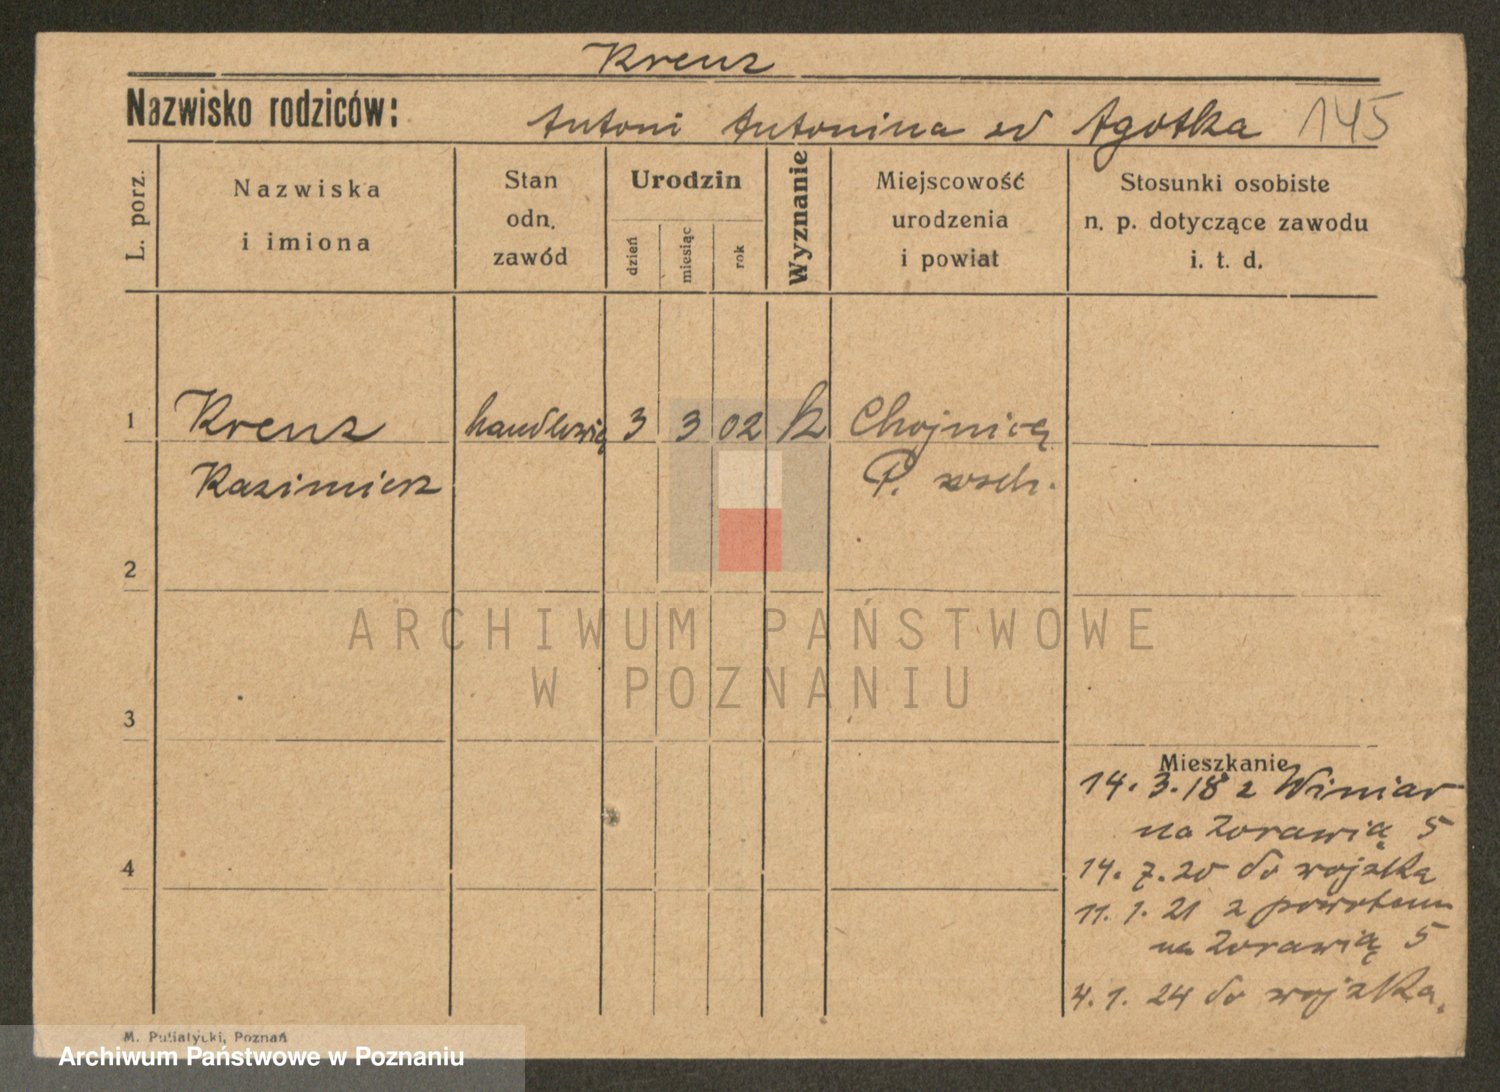 Krenz
Nazwisko rodziców: Antoni Antonina zd Agotka 145
L. porz.
Nazwiska
i imiona
Stan
odn.
zawód
Urodzin
dzień
miesiąc
rok
Wyznanie
Miejscowość
urodzenia
i powiat
Stosunki osobiste
n. p. dotyczące zawodu
i. t. d.
1 Krenz 3 3 02 k Chojnicę
Kazimierz P. wsch.
2
ARCHIWUM PAŃSTWOWE
W POZNANIU
3
Mieszkanie
14. 3. 18 z Winiar
na Żorawią 5
4
14. 7. 20 do wojska
11. 1. 21 z powrotem
na Żorawią 5
4. 1. 24 do wojska.
M. Putiatycki, Poznań
Archiwum Państwowe w Poznaniu